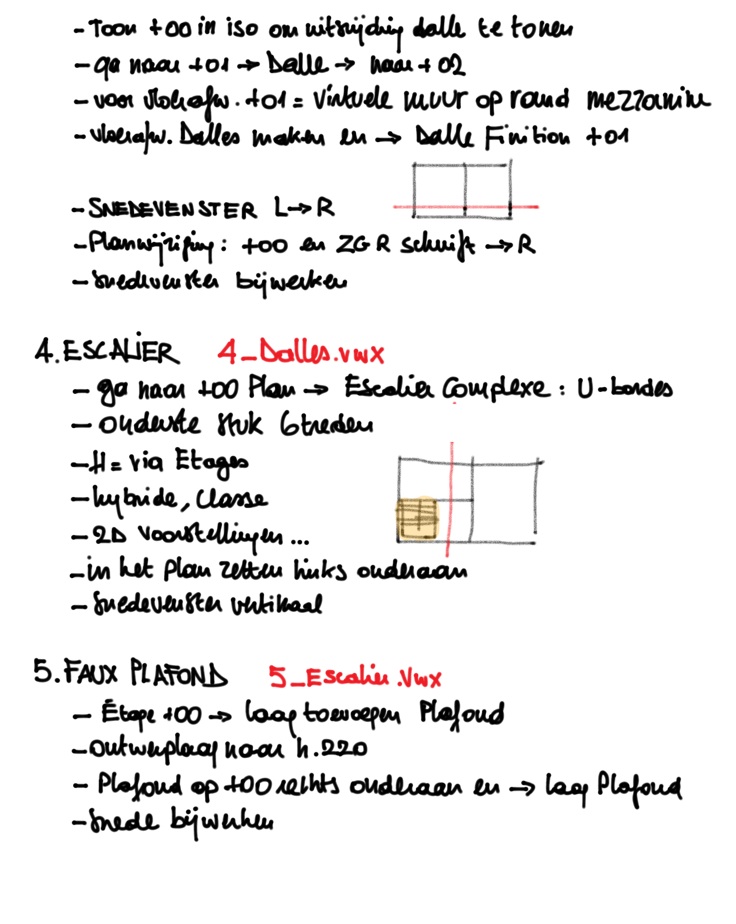 - Toon +00 in iso om uitsnijding dalle te tonen
- ga naar +01 → Dalle → naar + 02
- voor vloerafw. +01 = Virtuele muur op rand mezzanine
- vloerafw. Dalles maken en → Dalle Finition +01
- SNEDEVENSTER L→R
- Planwijziging: +00 en ZGR schuift → R
- Snedevenster bijwerken
4. ESCALIER 4_Dalles.vwx
- ga naar +00 Plan → Escalier Complexe : U-bordes
- onderste stuk 6 treden
- H= via Etages
- hybride, classe
- 2D voorstellingen ...
- in het plan zetten links onderaan
- Snedevenster vertikaal
5. FAUX PLAFOND 5_Escalier.vwx
- Étape +00 → laag toevoegen Plafond
- Ontwerplaag naar h.220
- Plafond op +00 rechts onderaan en → laag Plafond
- Snede bijwerken